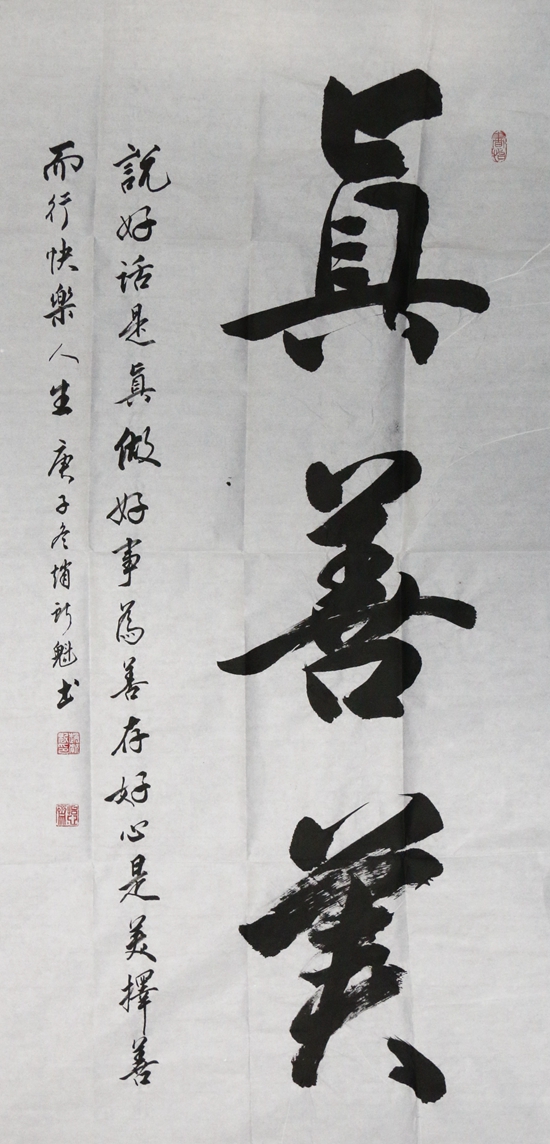 真善美
說好話是真做好事為善存好心是美擇善
而行快樂人生 庚子冬 魁書